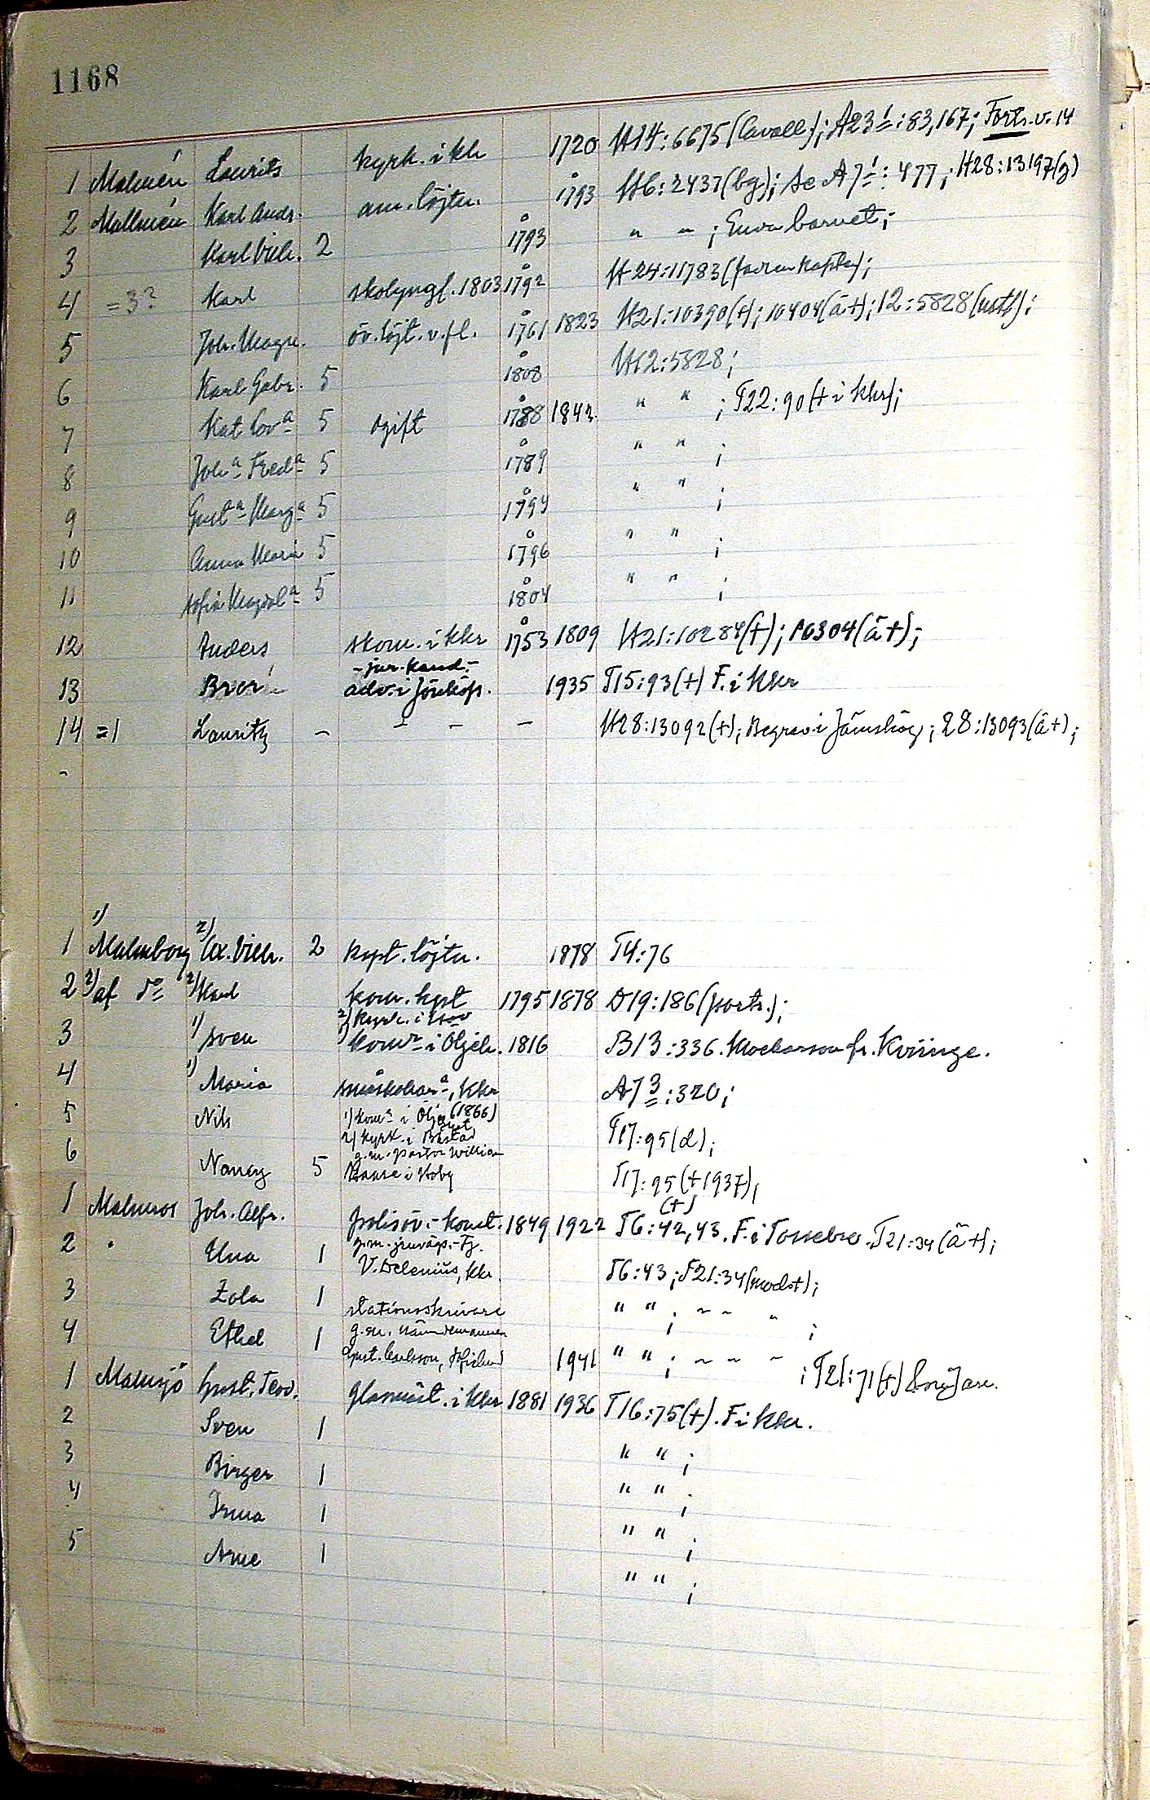 1168
1 Malmén Laurits kyrk. i khr 1720 H14:6675 (Cavall); A23¹:83,167; Forts. v. 14
2 Mallmén Karl Andr. am. löjtn. 1793 H6:2437 (bg); Se A7¹:477; H28:13197(g)
3 Karl Vilh. 2 1793 " " ; Enda barnet;
4 =3? Karl skolyngl. 1803 1792 H24:11783
5 Joh. Magn. öv. löjt. v. fl. 1761 1823 H21:10390(+); 10404(ä+); 12:5828
6 Karl Gabr. 5 1808 H12:5828;
7 Kat Lovª 5 ogift 1788 1843 " " ; T22:90 (+ i khr);
8 Johª Fredª 5 1789 " " ;
9 Gustª Margª 5 1794 " " ;
10 Anna Maria 5 1796 " " ;
11 Sofia Magdalª 5 1804 " " ;
12 Anders skom. i khr 1753 1809 H21:10284(+); 10304(ä+);
13 Bror -jur. kand.- adv. i Jönköp. 1935 T15:93(+) F. i Khr
14 =1 Lauritz - - - - H28:13092(+); Begrav i Jämshög; 28:13093(ä+);
-
1 1) Malmborg 2) Ax. Vilh. 2 kapt. löjtn. 1878 T4:76
2 2) af dº 2) Karl kom. kapt 1795 1878 D19:186 (portr.);
3 1) Sven 2) Kyrk. i 1) komʳ i Öljeh. 1816 B13:336. Klockarson fr. Kviinge.
4 1) Maria småskolarª, Khr A7³:320;
5 Nils 1) komʳ i (1866) 2) kyrk. i Båstad T17:95(d);
6 Nancy 5 g.m. pastor William i T17:95 (+1937);
1 Malmros Joh. Alfr. polisöv.-konst. 1849 1922 T6:42,43. (+) F. i Tossebro. T21:34 (ä+);
2 Una 1 g.m. järnvägs.-Tj. V. Delenius, Khr. T6:43; T21:34 (mod+);
3 Zola 1 stationsskrivare " " ; ~ ~ " ;
4 Ethel 1 g.m. nämndemannen Gust. Carlsson, 1941 " " ; ~ ~ ~ ; T21:71(+)
1 Malmsjö Gust. Teod. glasmäst. i khr 1881 1936 T16:75(+). F i Khr.
2 Sven 1 " " ;
3 Birger 1 " " ;
4 Irma 1 " " ;
5 Arne 1 " " ;